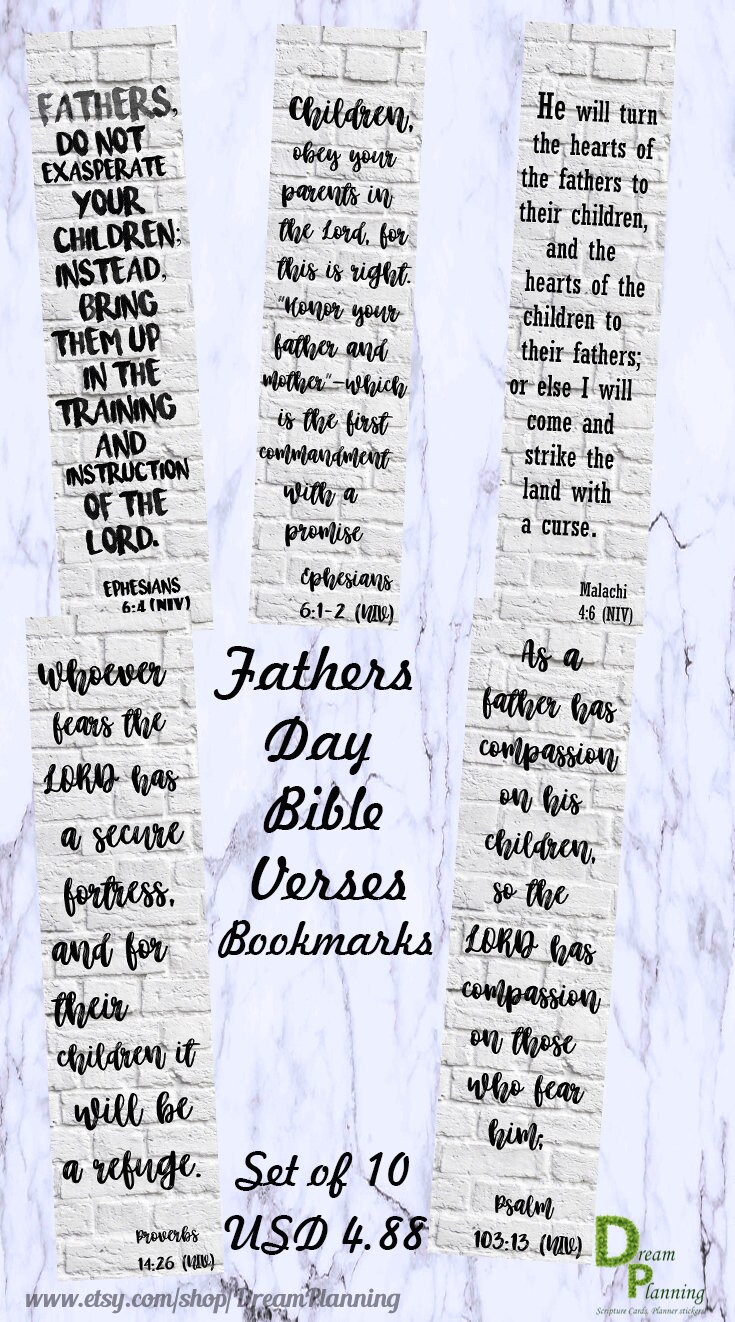 FATHERS,
DO NOT
EXASPERATE
YOUR
CHILDREN;
INSTEAD,
BRING
THEM UP
IN THE
TRAINING
AND
INSTRUCTION
OF THE
LORD.
EPHESIANS
6:4 (NIV)
Children,
obey your
parents in
the Lord, for
this is right.
"Honor your
father and
mother"-which
is the first
commandment
with a
promise
Ephesians
6:1-2 (NIV)
He will turn
the hearts of
the fathers to
their children,
and the
hearts of the
children to
their fathers;
or else I will
come and
strike the
land with
a curse.
Malachi
4:6 (NIV)
Whoever
fears the
LORD has
a secure
fortress,
and for
their
children it
will be
a refuge.
Proverbs
14:26 (NIV)
Fathers
Day
Bible
Verses
Bookmarks
Set of 10
USD 4.88
As a
father has
compassion
on his
children,
so the
LORD has
compassion
on those
who fear
him;
Psalm
103:13 (NIV)
www.etsy.com/shop/DreamPlanning
Dream
Planning
Scripture Cards, Planner stickers